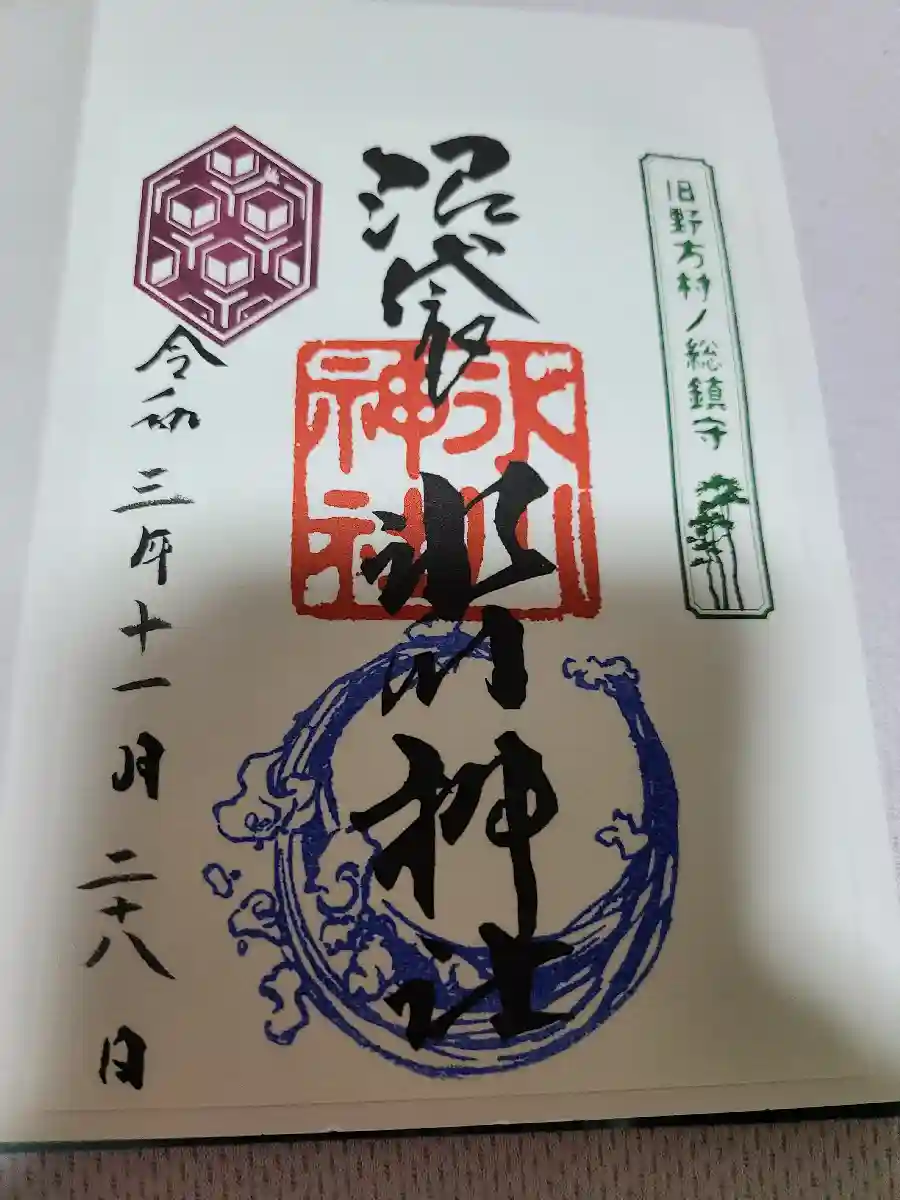 旧野方村ノ総鎮守
沼袋氷川神社
氷川
神社
令和三年十一月二十八日